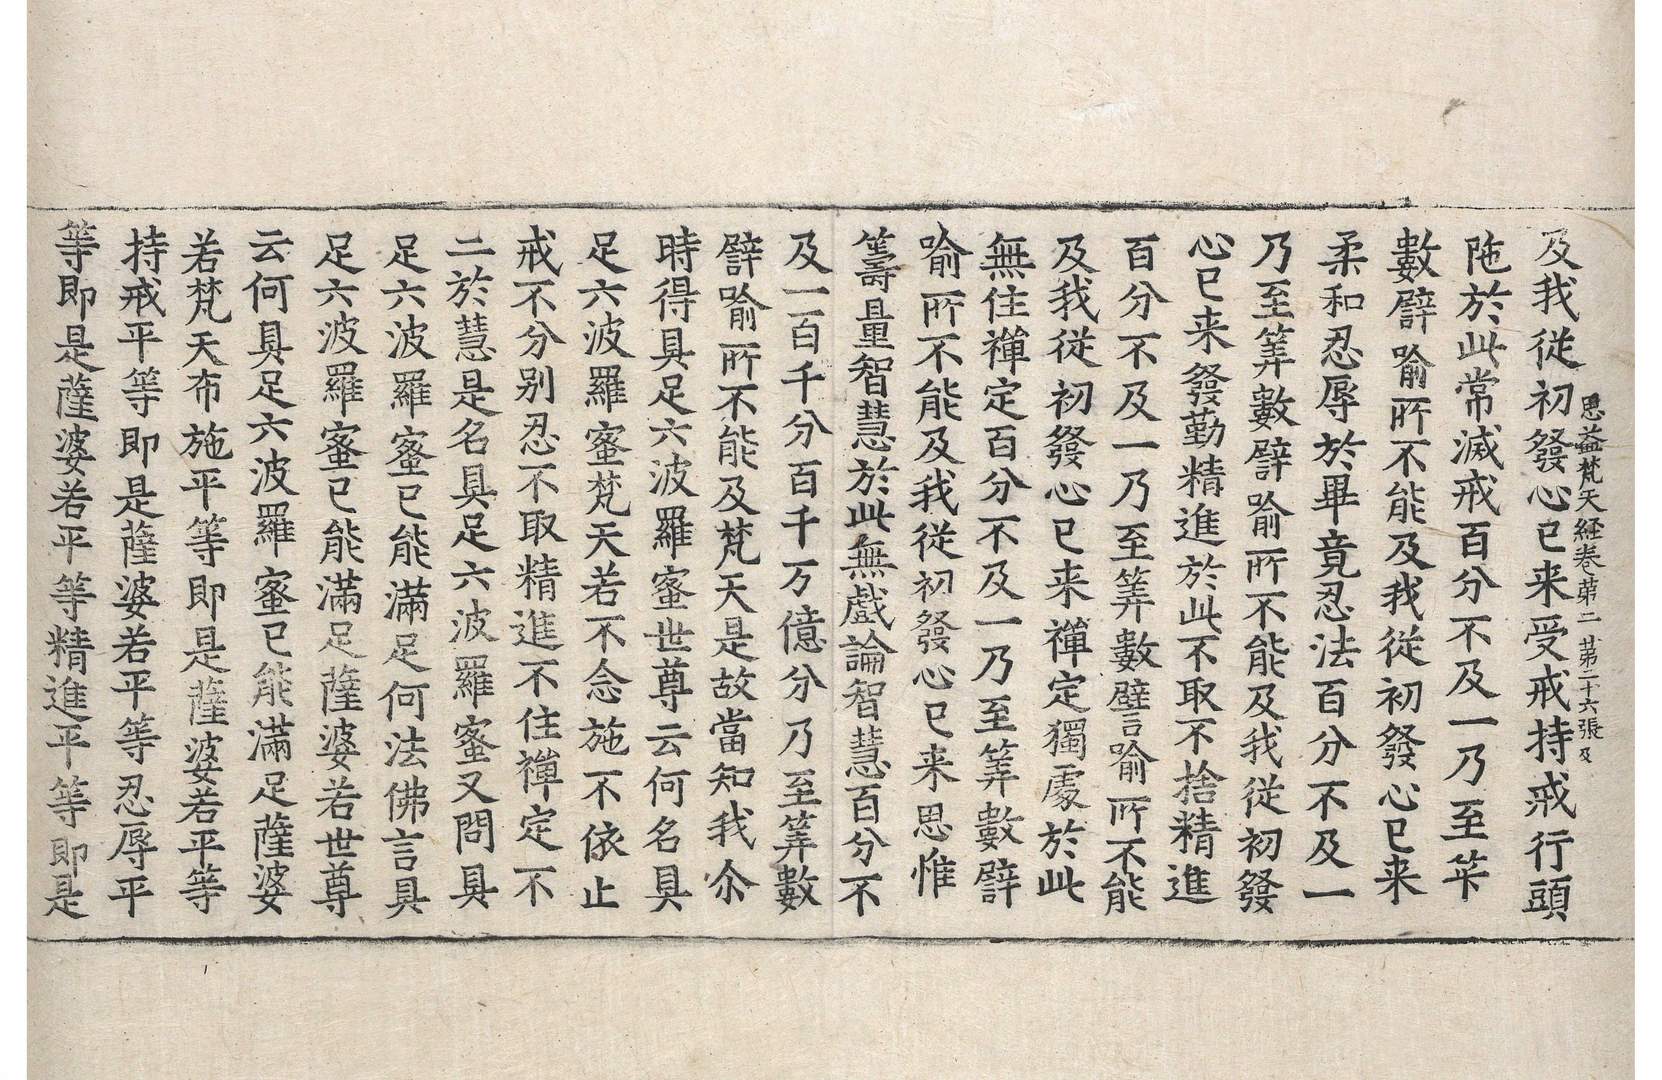 思益梵天經卷苐二 苐二十六張 及
及我從初發心已来受戒持戒行頭
陁於此常滅戒百分不及一乃至筭
數譬喻所不能及我從初發心已来
柔和忍辱於畢竟忍法百分不及一
乃至筭數譬喻所不能及我從初發
心已来發勤精進於此不取不捨精進
百分不及一乃至筭數譬喻所不能
及我從初發心已来禪定獨處於此
無住禪定百分不及一乃至筭數譬
喻所不能及我從初發心已来思惟
籌量智慧於此無戲論智慧百分不
及一百千分百千万億分乃至筭數
譬喻所不能及梵天是故當知我尒
時得具足六波羅蜜世尊云何名具
足六波羅蜜梵天若不念施不依止
戒不分別忍不取精進不住禪定不
二於慧是名具足六波羅蜜又問具
足六波羅蜜已能滿足何法佛言具
足六波羅蜜已能滿足薩婆若世尊
云何具足六波羅蜜已能滿足薩婆
若梵天布施平等即是薩婆若平等
持戒平等即是薩婆若平等忍辱平
等即是薩婆若平等精進平等即是